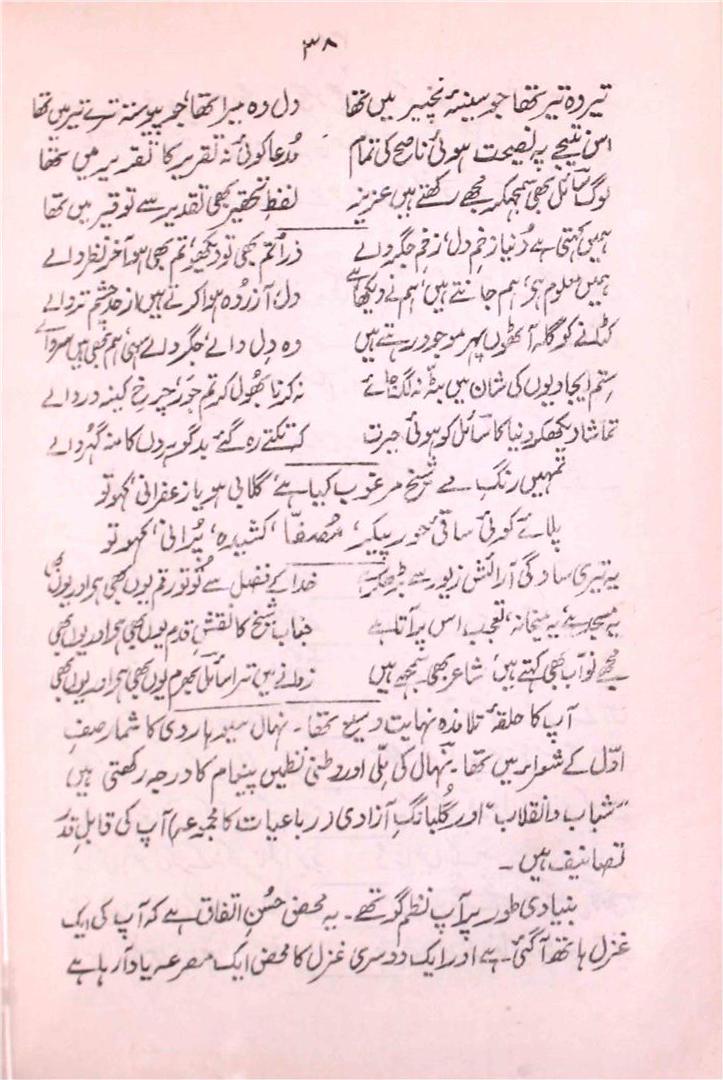 ۳۸
تیر وہ تیر تھا جو سینۂ نخچیر میں تھا دل وہ میرا تھا، جو پیوستہ ترے تیر میں تھا
اس نتیجے پہ نصیحت ہوئی ناصح کی تمام مُدعا کوئی نہ تقریر کا تقریر میں تھا
لوگ سائل بھی سمجھکر مجھے رکھتے ہیں عزیز لفظ تحقیر بھی تقدیر سے توقیر میں تھا
ہمیں کہتی ہے دُنیا زخمِ دل، زخمِ جگر والے ذرا تم بھی تو دیکھو، تم بھی ہو آخر نظر والے
ہمیں معلوم ہی، ہم جانتے ہیں، ہم نے دیکھا ہے دل، آزردہ ہوا کرتے ہیں از حد چشمِ تر والے
کٹانے کو گلہ آٹھوں پہر موجود رہتے ہیں وہ دل والے، جگر والے سہی، ہم بھی ہیں سر والے
ستم ایجادیوں کی شان میں بٹّہ نہ لگ جائے نہ کرنا بھول کر تم جَور، چرخِ کینہ ور والے
تماشا دیکھکر دنیا کا سائل کو ہوئی حیرت کہ تکتے رہ گئے بدگوہروں کا منہ گہر والے
تمہیں رنگِ مے شیخ مرغوب کیا ہے، گلابی ہو یا زعفرانی، کہو تو
پلائے کوئی ساقی حور پیکر، مُصفّا، کشیدہ، پُرانی، کہو تو
یہ تیری سادگی آرائش زیور سے بڑھکر ہے خدا کے فضل سے تُو تو رقم یوں بھی ہی اور یوں بھی
یہ مسجد ہے، یہ میخانہ، تعجب اس پر آتا ہے جنابِ شیخ کا نقشِ قدم یوں بھی ہی اور یوں بھی
تجھے نواب بھی کہتے ہیں، شاعر بھی سمجھے ہیں زمانے میں ترا سائل بھرم یوں بھی ہی اور یوں بھی
آپ کا حلقۂ تلامذہ نہایت وسیع تھا۔ نہال سیوہاروی کا شمار صفِ
اوّل کے شعراء میں تھا۔ نہال کی ملّی اور وطنی نظمیں پیغام کا درجہ رکھتی ہیں
"شباب و انقلاب" اور گلبانگِ آزادی (رباعیات کا مجموعہ) آپ کی قابلِ قدر
تصانیف ہیں۔
بنیادی طور پر آپ نظم گو تھے۔ یہ محض حُسنِ اتفاق ہے کہ آپ کی ایک
غزل ہاتھ آ گئی۔ ہے اور ایک دوسری غزل کا محض ایک مصرعہ یاد آ رہا ہے